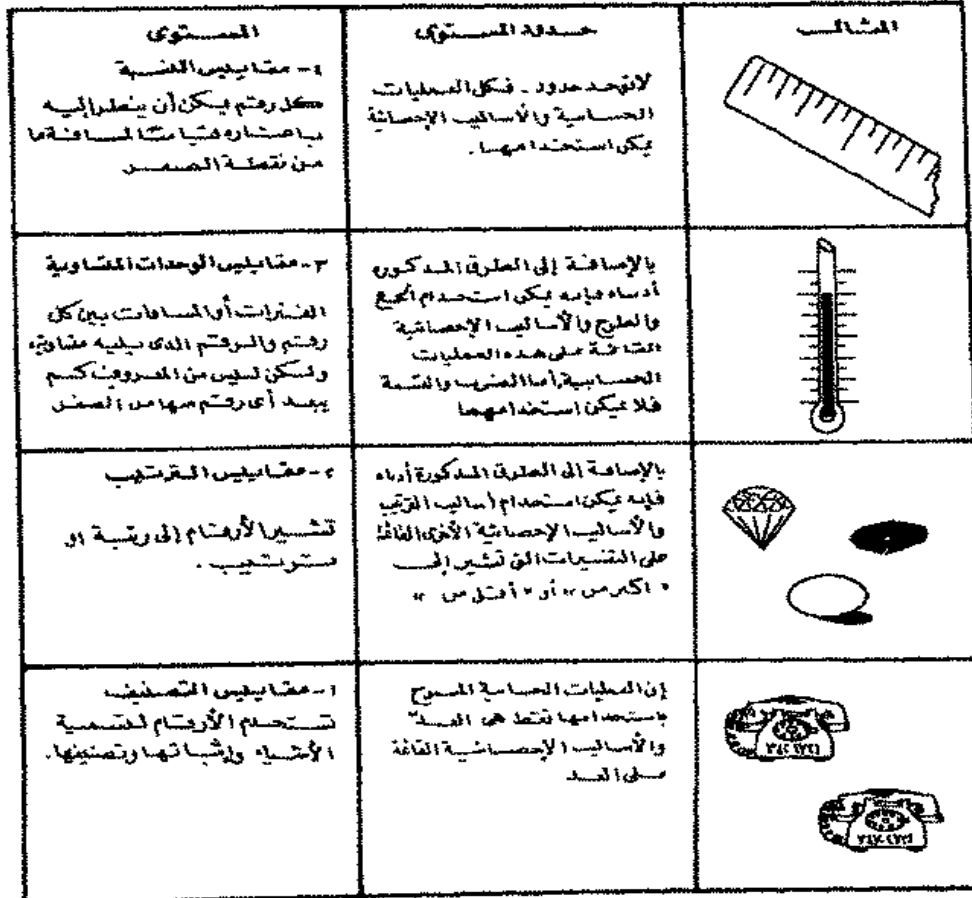 المستوى
حدود المستوى
المثال
٤- مقاييس النسبة
كل رقم يمكن أن ينظر إليه
باعتباره قياسا لمسافة ما
من نقطة الصفر
لا توجد حدود - فكل العمليات
الحسابية والأساليب الإحصائية
يمكن استخدامها.
٣- مقاييس الوحدات المتساوية
الفترات أو المسافات بين كل
رقم والرقم الذى يليه متساوية
ولكن ليس من المعروف كم
يبعد أى رقم منها من الصفر
بالإضافة إلى الطرق المذكورة
أدناه فإنه يمكن استخدام الجمع
والطرح والأساليب الإحصائية
القائمة على هذه العمليات
الحسابية، أما الضرب والقسمة
فلا يمكن استخدامهما
٢- مقاييس الترتيب
تشير الأرقام إلى رتبة او
ترتيب.
بالإضافة إلى الطرق المذكورة أدناه
فإنه يمكن استخدام أساليب الترتيب
والأساليب الإحصائية الأخرى القائمة
على التفسيرات التى تشير إلى
" اكبر من " أو " أقل من "
١- مقاييس التصنيف
تستخدم الأرقام لتسمية
الأشياء وإثباتها وتصنيفها.
إن العمليات الحسابية المسموح
باستخدامها فقط هى العد
والأساليب الإحصائية القائمة
على العد